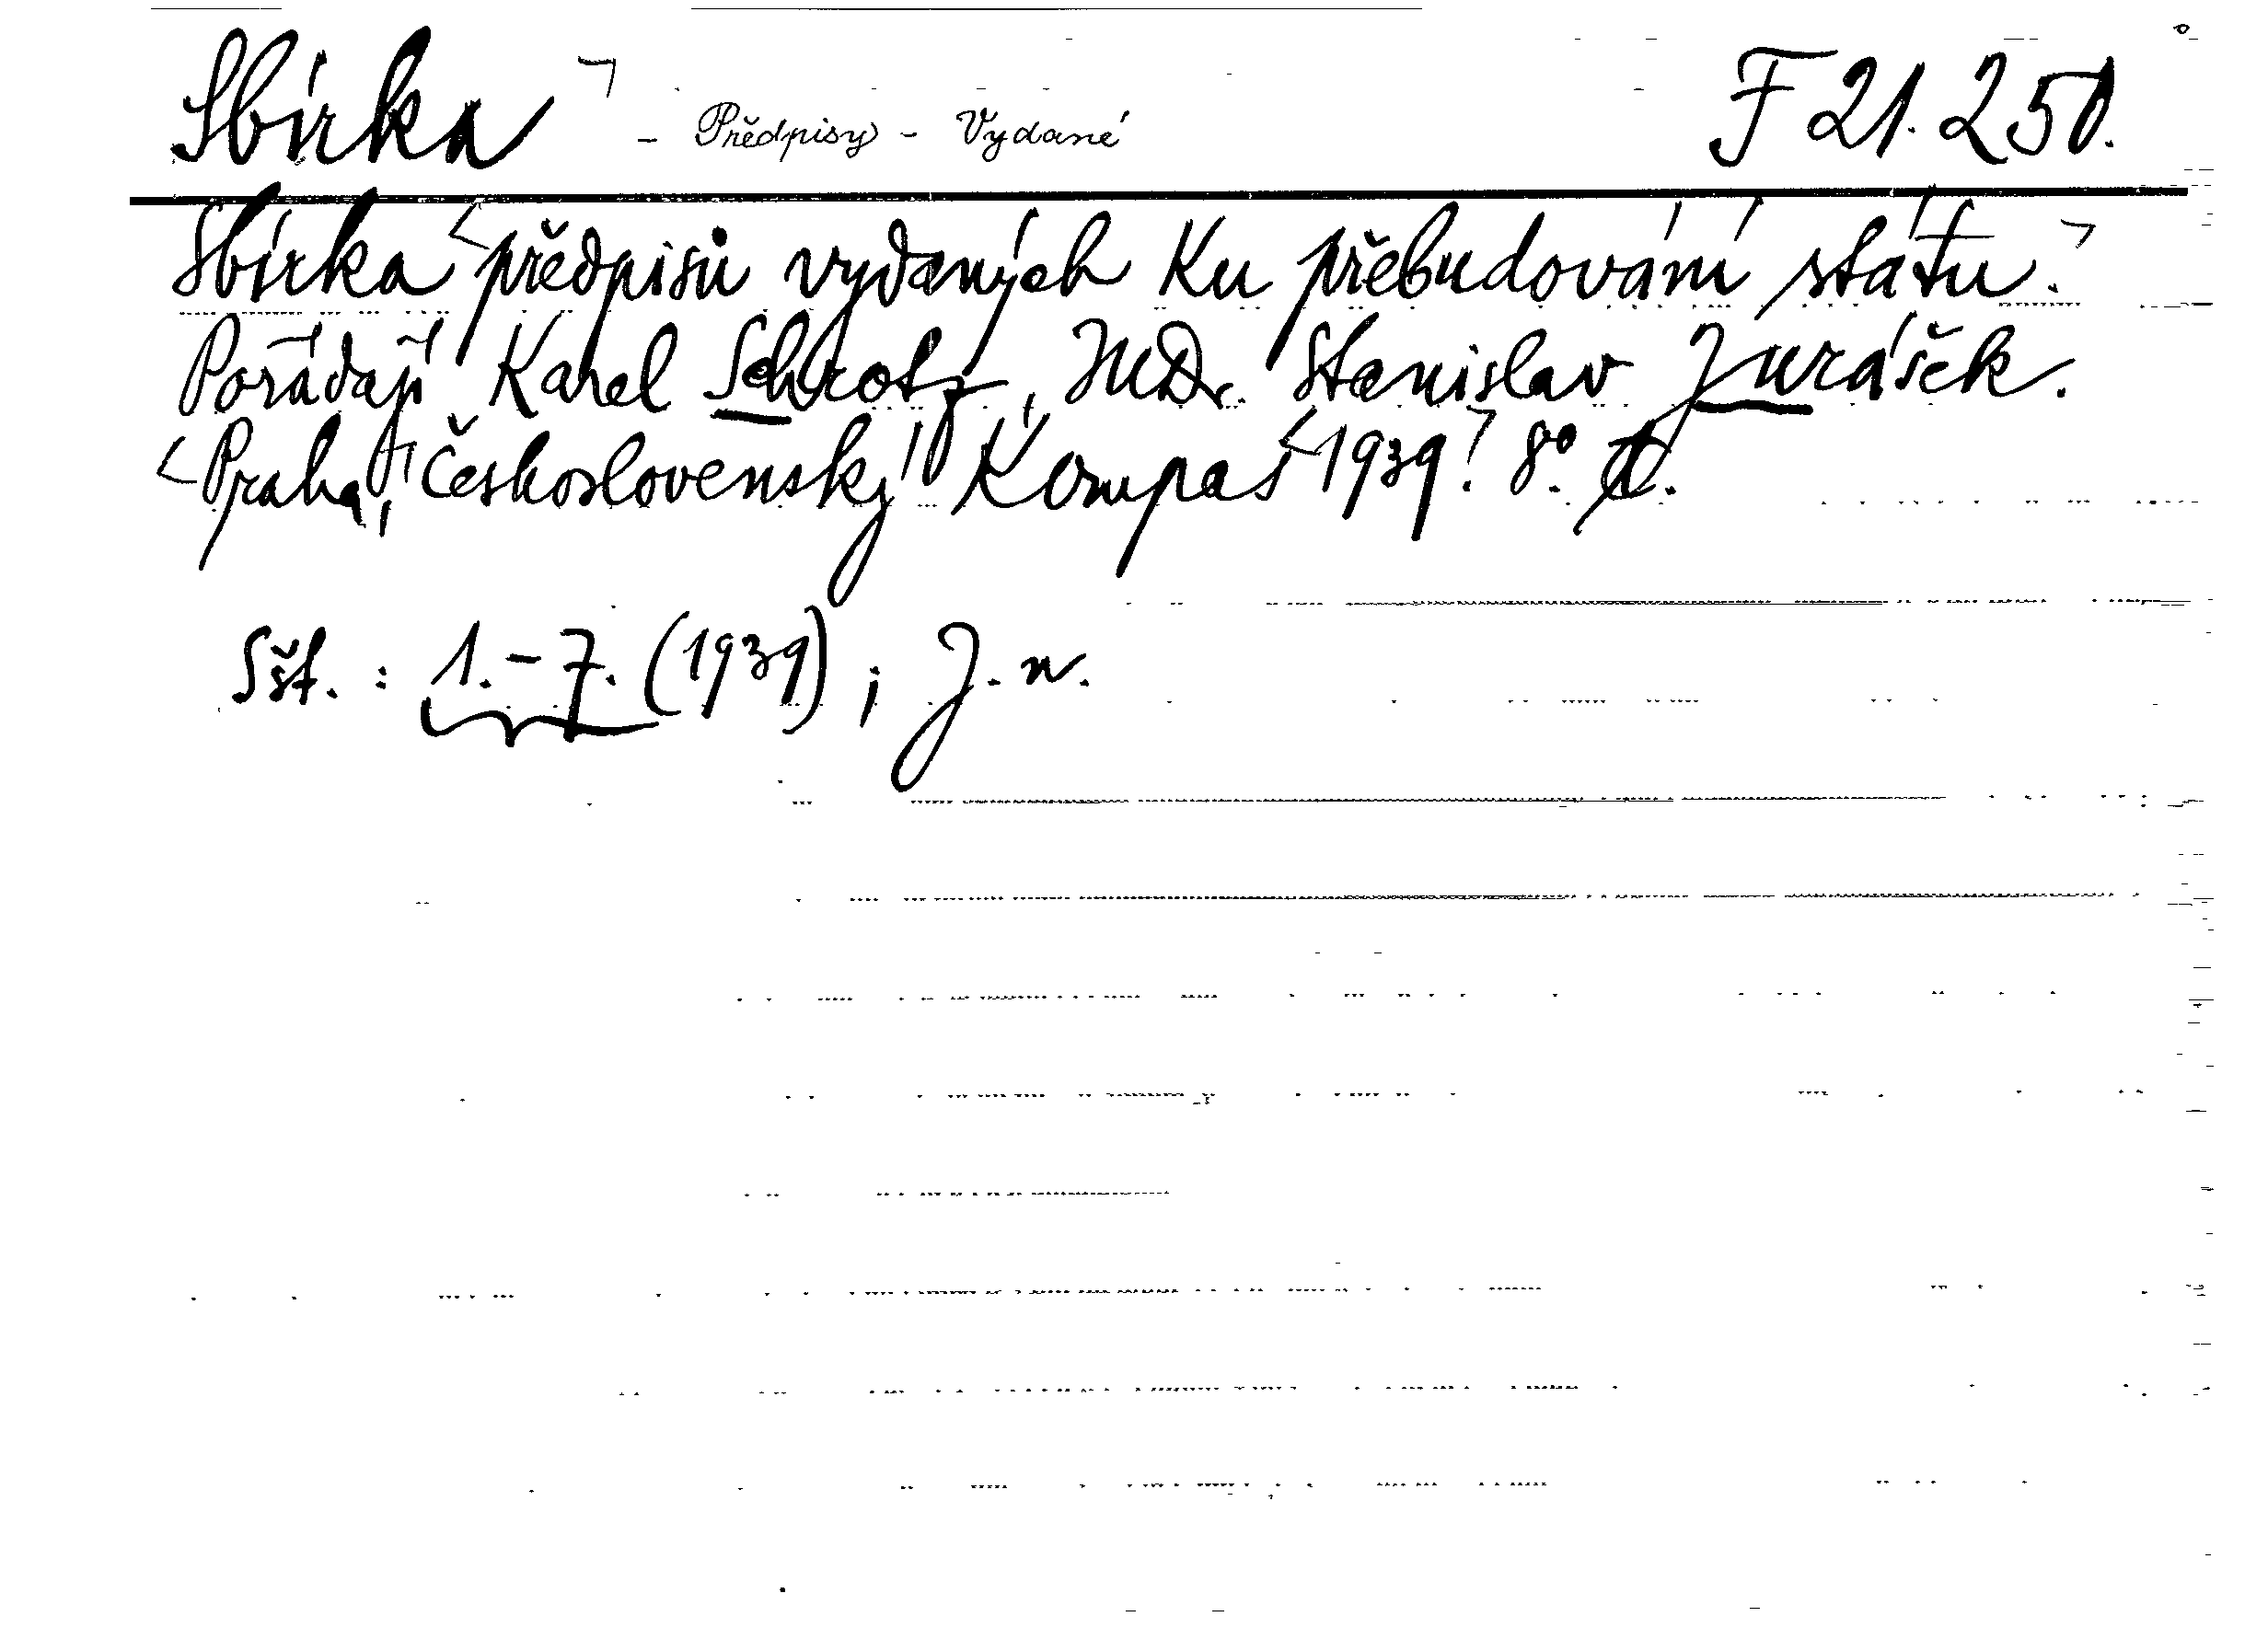 Sbírka - Předpisy - Vydané F 21.250.
Sbírka předpisů vydaných ku přebudování státu.
Pořádají Karel Schrotz, JUDr. Stanislav Jurášek.
Praha, Československý Kompas 1939. 8°.
Sšt. : 1.-7. (1939) ; J. n.